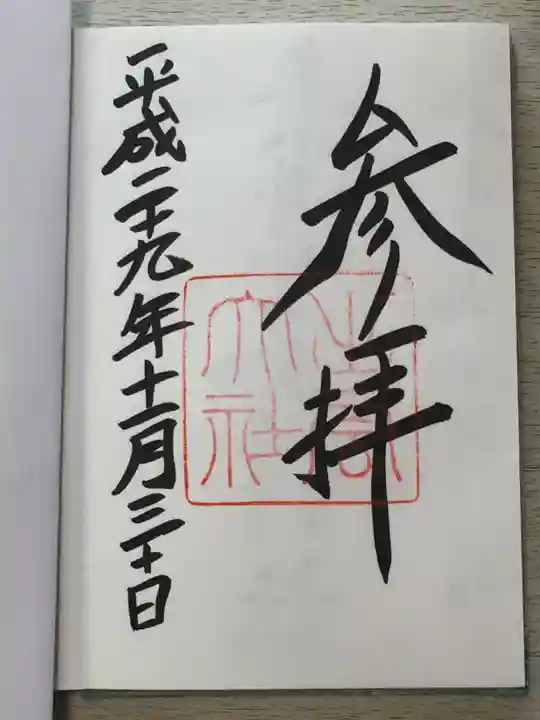 参拝
平成二十九年十一月三十日